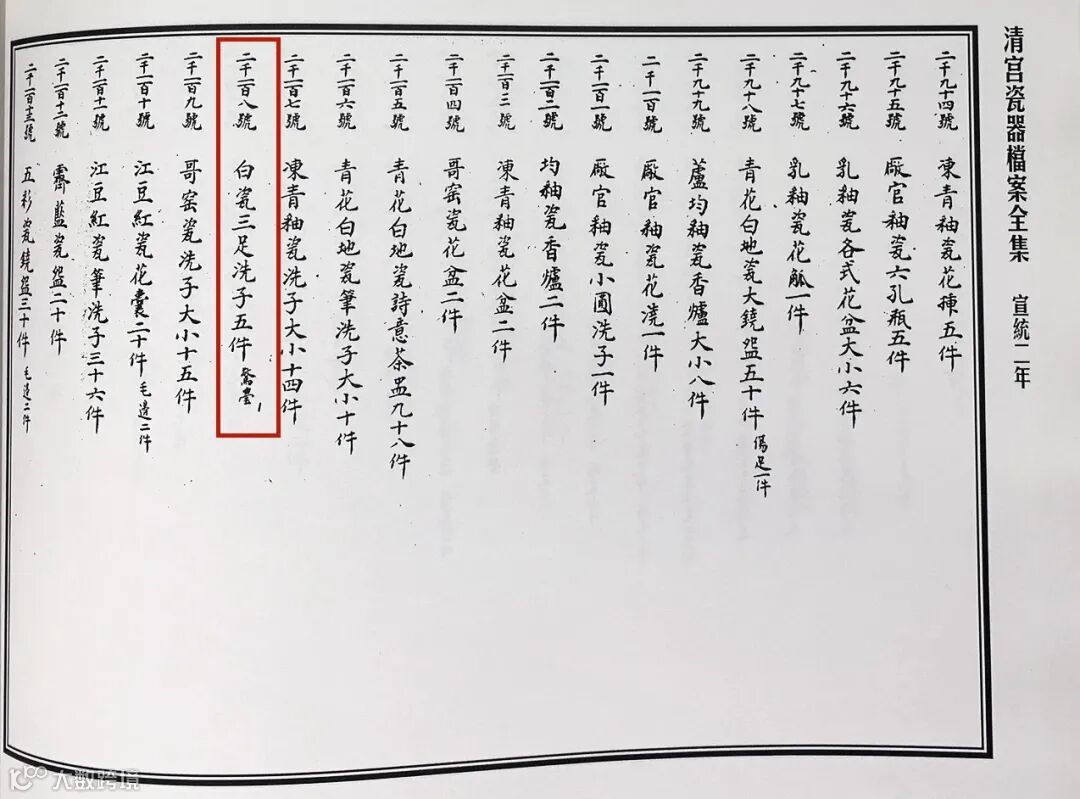 清宮瓷器檔案全集 宣統二年
二千九十四號 凍青釉瓷花揷五件
二千九十五號 廠官釉瓷六孔瓶五件
二千九十六號 乳釉瓷各式花盆大小六件
二千九十七號 乳釉瓷花觚一件
二千九十八號 青花白地瓷大鐃盌五十件 傷足一件
二千九十九號 蘆均釉瓷香爐大小八件
二千一百號 廠官釉瓷花澆一件
二千一百一號 廠官釉瓷小圓洗子一件
二千一百二號 均釉瓷香爐二件
二千一百三號 凍青釉瓷花盆二件
二千一百四號 哥窑瓷花盆二件
二千一百五號 青花白地瓷詩意茶盅九十八件
二千一百六號 青花白地瓷筆洗子大小十件
二千一百七號 凍青釉瓷洗子大小十四件
二千一百八號 白瓷三足洗子五件
二千一百九號 哥窑瓷洗子大小十五件
二千一百十號 江豆紅瓷花囊二十件 毛邊二件
二千一百十一號 江豆紅瓷筆洗子三十六件
二千一百十二號 霽藍瓷盌二十件
二千一百十三號 五彩瓷鐃盌三十件 毛邊二件
大数跨境